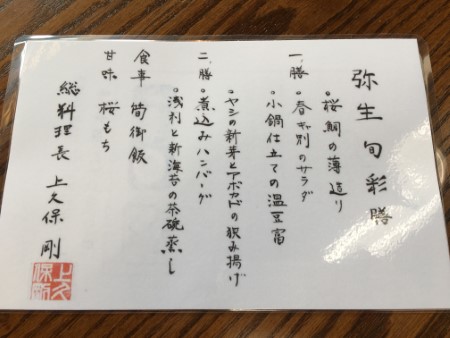 弥生旬彩膳
一、膳 。桜鯛の薄造り
。春キャ別のサラダ
。小鍋仕立ての温豆富
二、膳 。ヤシの新芽とアボカドの挟み揚げ
。煮込みハンバーグ
。浅利と新海苔の茶碗蒸し
食事 筍御飯
甘味 桜もち
総料理長 上久保 剛
上久保剛